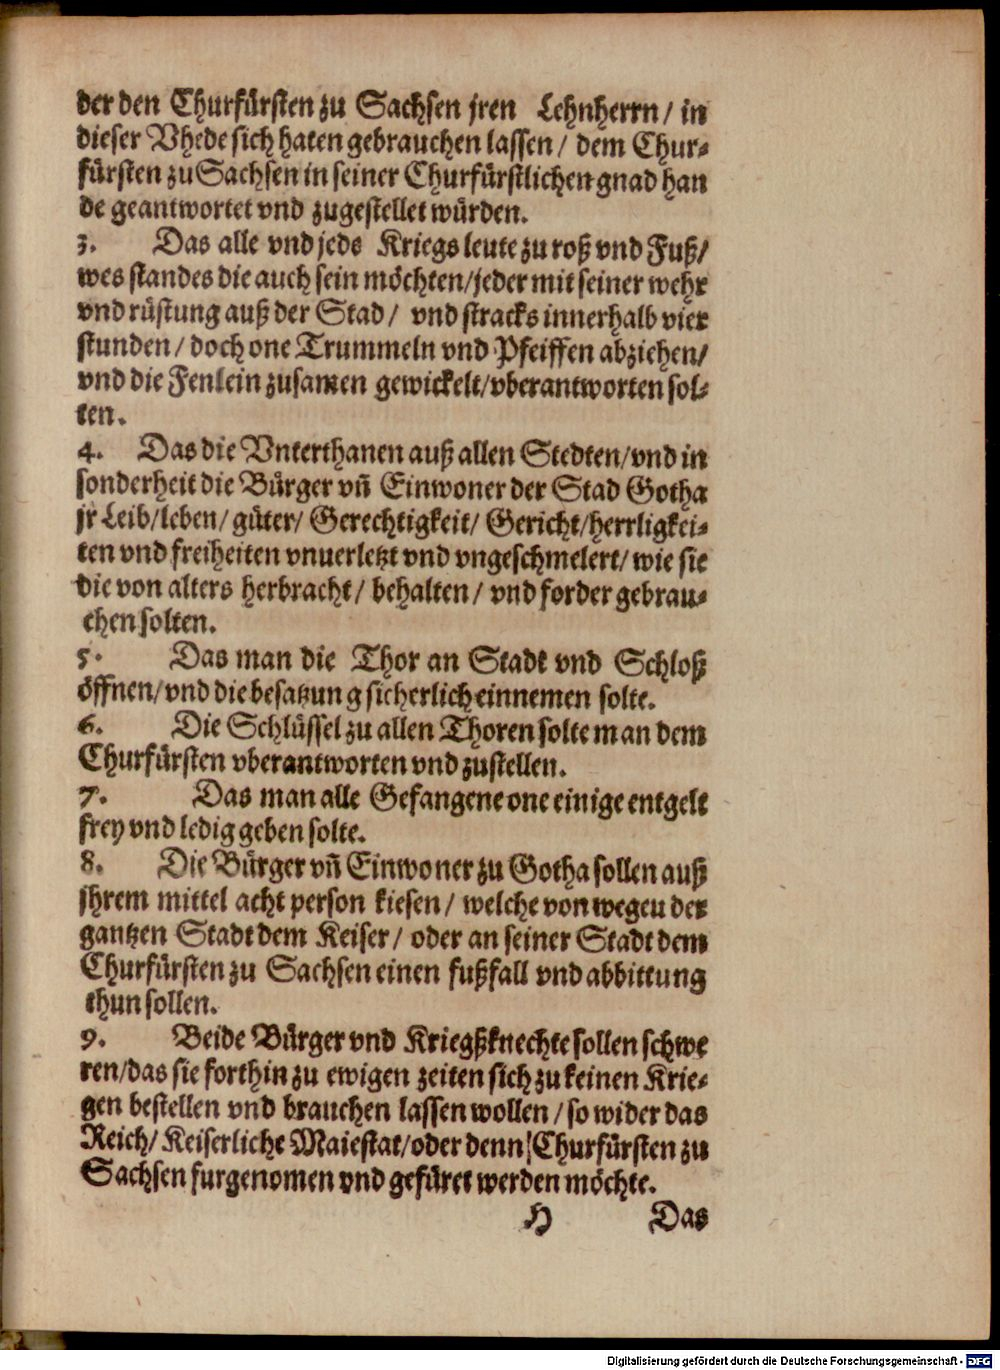 der den Churfürsten zu Sachsen jren Lehnherrn / in
dieser Vhede sich haten gebrauchen lassen / dem Chur-
fürsten zu Sachsen in seiner Churfürstlichen gnad han
de geantwortet vnd zugestellet würden.
3. Das alle vnd jede Kriegsleute zu roß vnd Fuß/
wes standes die auch sein möchten/jeder mit seiner wehr
vnd rüstung auß der Stad / vnd stracks innerhalb vier
stunden / doch one Trummeln vnd Pfeiffen abziehen/
vnd die Fenlein zusamen gewickelt/vberantworten sol-
ten.
4. Das die Vnterthanen auß allen Stedten/vnd in
sonderheit die Bürger vñ Einwoner der Stad Gotha
jr Leib/leben/ güter/ Gerechtigkeit/ Gericht/herrligkei-
ten vnd freiheiten vnuerletzt vnd vngeschmelert/ wie sie
die von alters herbracht / behalten / vnd forder gebrau-
chen solten.
5. Das man die Thor an Stadt vnd Schloß
öffnen/vnd die besatzung sicherlich einnemen solte.
6. Die Schlüssel zu allen Thoren solte man dem
Churfürsten vberantworten vnd zustellen.
7. Das man alle Gefangene one einige entgelt
frey vnd ledig geben solte.
8. Die Bürger vñ Einwoner zu Gotha sollen auß
jhrem mittel acht person kiesen / welche von wegeu der
gantzen Stadt dem Keiser / oder an seiner Stadt dem
Churfürsten zu Sachsen einen fußfall vnd abbittung
thun sollen.
9. Beide Bürger vnd Kriegßknechte sollen schwe
ren/das sie forthin zu ewigen zeiten sich zu keinen Krie-
gen bestellen vnd brauchen lassen wollen / so wider das
Reich/ Keiserliche Maiestat/oder denn Churfürsten zu
Sachsen furgenomen vnd gefüret werden möchte.
H Das
Digitalisierung gefördert durch die Deutsche Forschungsgemeinschaft - DFG